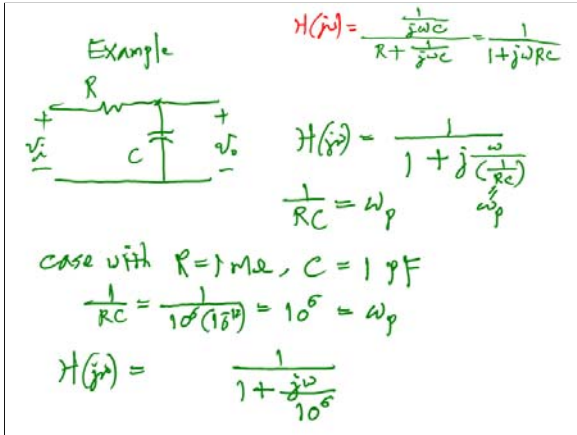 H(jω) = \frac{\frac{1}{jωC}}{R + \frac{1}{jωC}} = \frac{1}{1 + jωRC}
Example
R
+ +
v_i C v_o
− −
H(jω) = \frac{1}{1 + j\frac{ω}{(\frac{1}{RC})}}
\frac{1}{RC} = ω_p
ω_p
case with R = 1 MΩ, C = 1 pF
\frac{1}{RC} = \frac{1}{10^6(10^{-12})} = 10^6 = ω_p
H(jω) = \frac{1}{1 + \frac{jω}{10^6}}